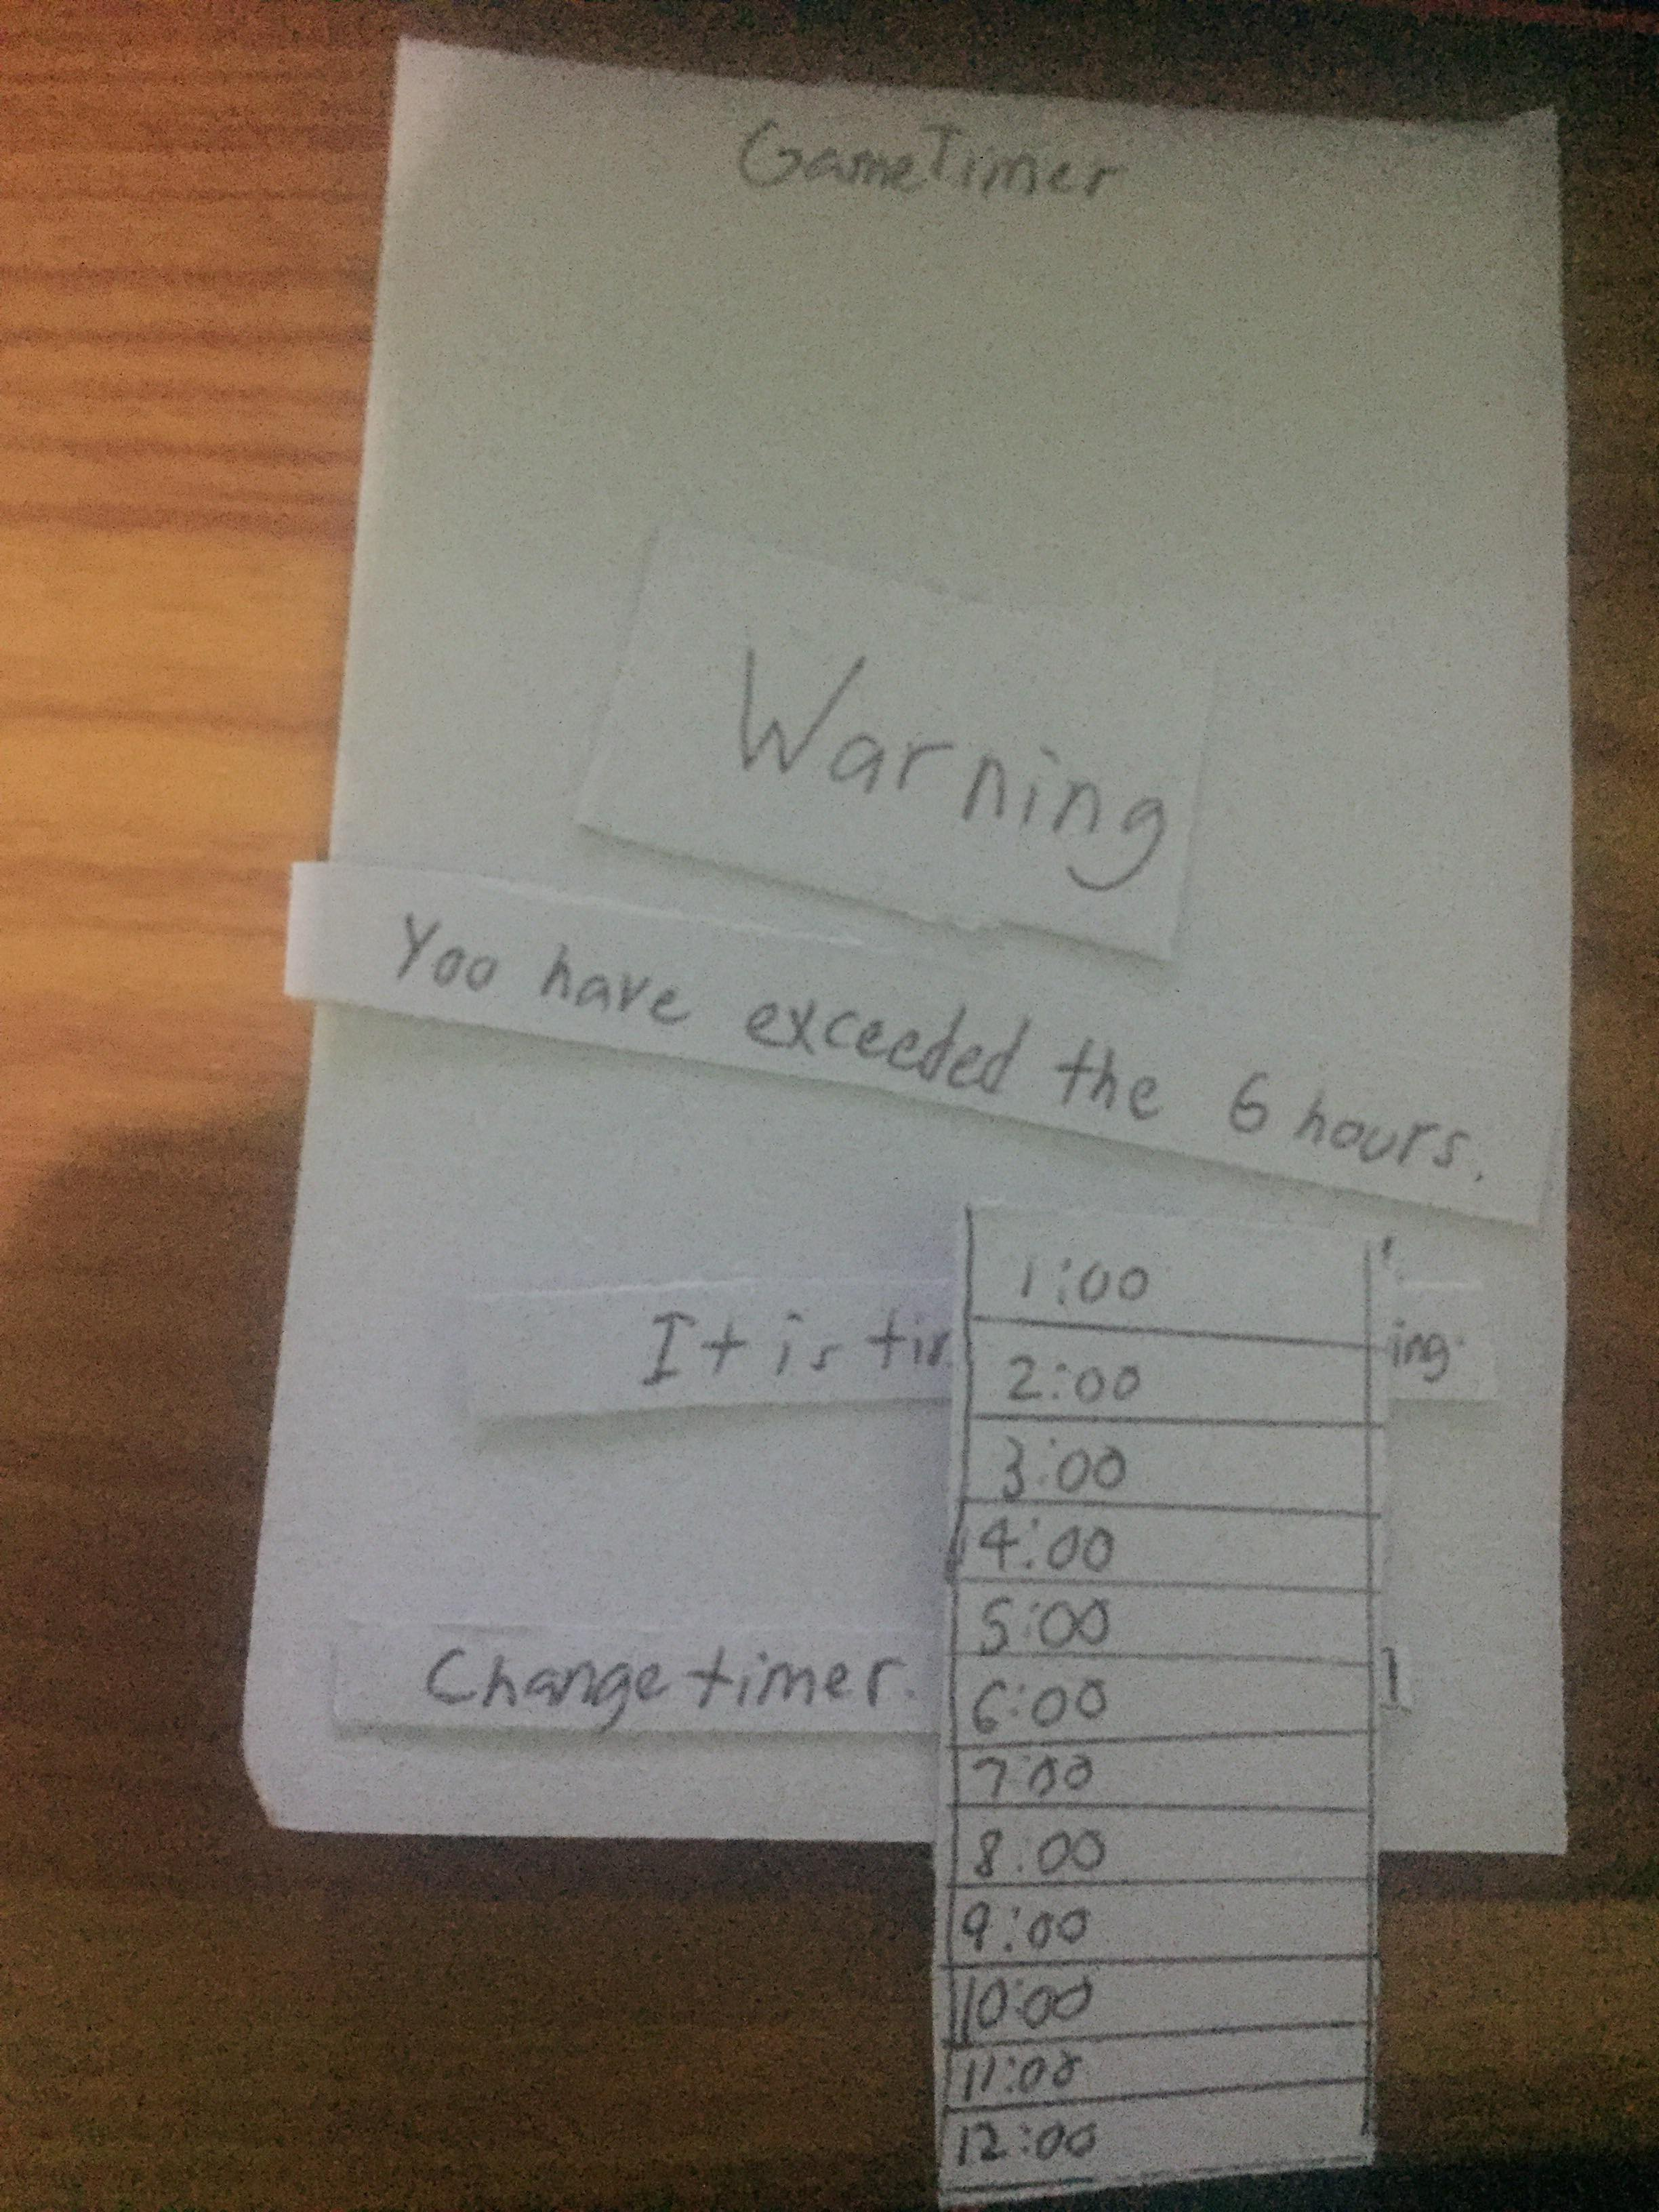 GameTimer
Warning
Yoo have exceeded the 6 hours.
It is
Change timer.
1:00
2:00
3:00
4:00
5:00
6:00
7:00
8:00
9:00
10:00
11:00
12:00